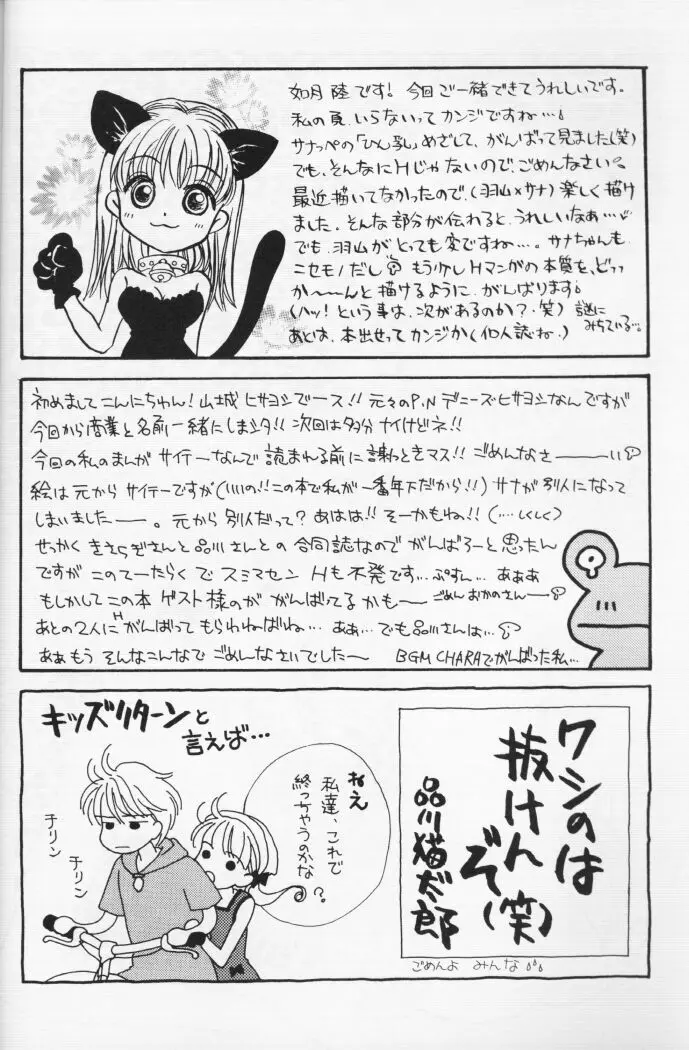 如月 陸です! 今回ご一緒できてうれしいです。
私の頁、いらないってカンジですね…!
サナッペの「ひん乳」めざして、がんばって見ました(笑)
でも、そんなにHじゃないので、ごめんなさい。
最近描いてなかったので、(羽山×サナ)楽しく描け
ました。そんな部分が伝わると、うれしいなぁ…
でも、羽山がとっても変ですね…。サナちゃんも
ニセモノだし もう少しHマンガの本質を、どっ
か〜〜んと描けるように、がんばります!
(ハッ! という事は、次があるのか?・笑) 謎に
みちている…。
あとは、本出せってカンジか(個人誌ね。)
初めまして こんにちゅん! 山城 ヒサヨシでース!! 元々のP.N デニーズヒサヨシなんですが
今回から商業と名前一緒にしまシタ!! 次回は多分ナイけどネ!!
今回の私のまんが サイテーなんで 読まれる前に謝っときマス!! ごめんなさ―――い
絵は元からサイテーですが(いいの!! この本で私が一番年下だから!!) サナが別人になって
しまいました――。元から別人だって? あはは!! そーかもね!! (…しくしく)
せっかく きさらぎさんと品川さんとの 合同誌なので がんばろーと思ったん
ですが このてーたらくで スミマセン Hも不発です…ぷすん… あぁあ
もしかしてこの本 ゲスト様のが がんばってるかも〜 ごめん おかのさん―
あとの2人に H がんばって もらわねばね… あぁ… でも品川さんは…
あぁもう そんなこんなで ごめんなさいでした〜 BGM CHARAでがんばった私…
キッズリターンと
言えば…
ねえ
私達、これで
終っちゃうのかな
?。
チリン
チリン
ワシのは
抜けん
ぞ(笑)
品川猫太郎
ごめんよ みんな